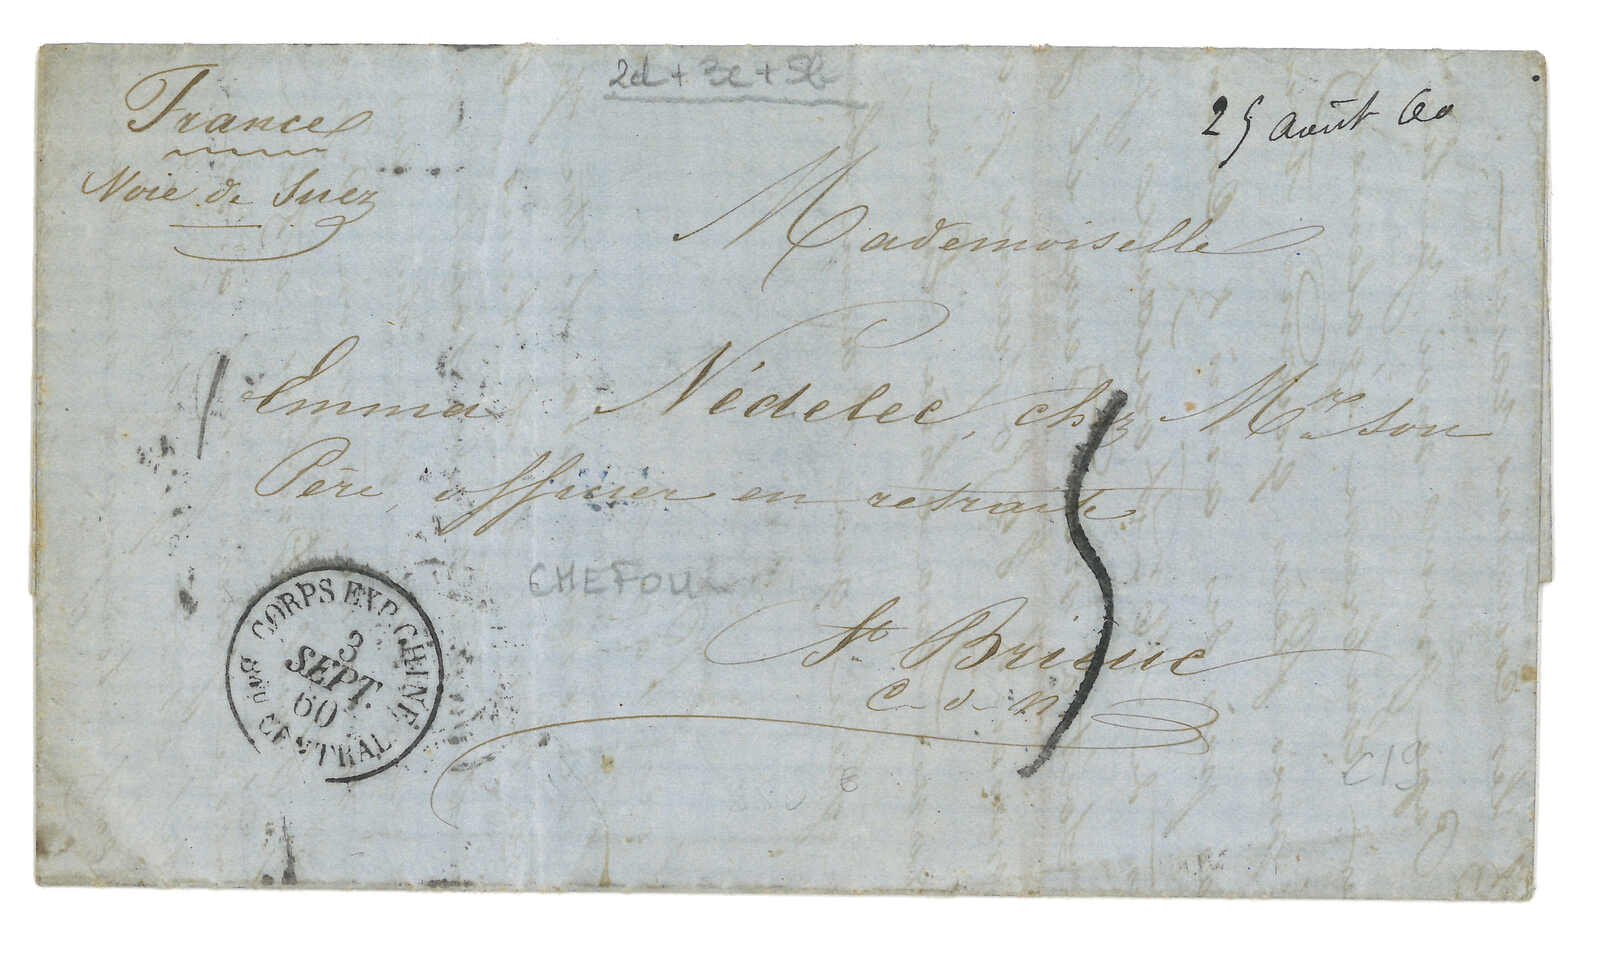 2d + 3c + 5b
France
Voie de Suez
25 août 60
Mademoiselle
Emma Nédelec, chez Mr son
Père, officier en retraite
CHEFOU
St Brieuc
C. d. N.
CORPS EXP. CHINE
3
SEPT.
60
Bau CENTRAL
C19